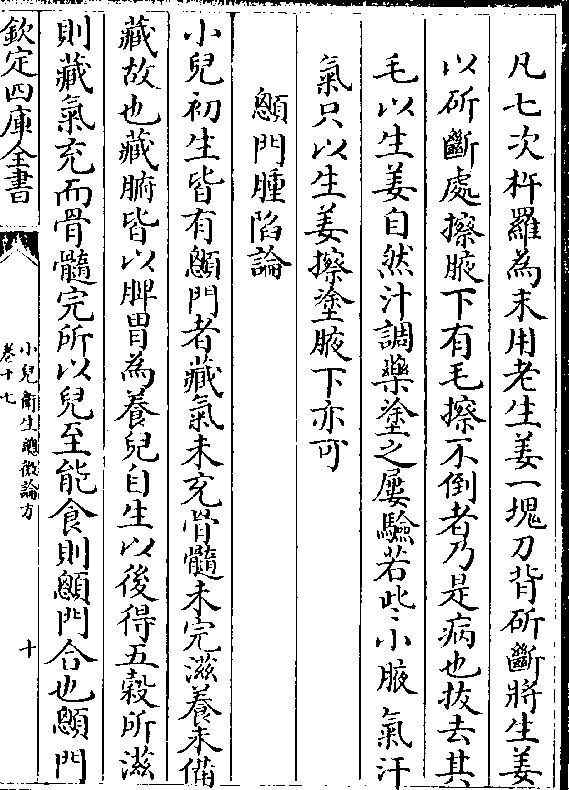 凡七次杵羅為末用老生姜一塊刀背斫斷將生姜
以斫斷處擦腋下有毛擦不倒者乃是病也拔去其
毛以生姜自然汁調藥塗之屢驗若此小腋氣汗
氣只以生姜擦塗腋下亦可
顖門腫陷論
小兒初生皆有顖門者藏氣未充骨髓未完滋養未備
藏故也藏腑皆以脾胃為養兒自生以後得五穀所滋
則藏氣充而骨髓完所以兒至能食則顖門合也顖門
欽定四庫全書
小兒衛生總微論方
卷十七
十